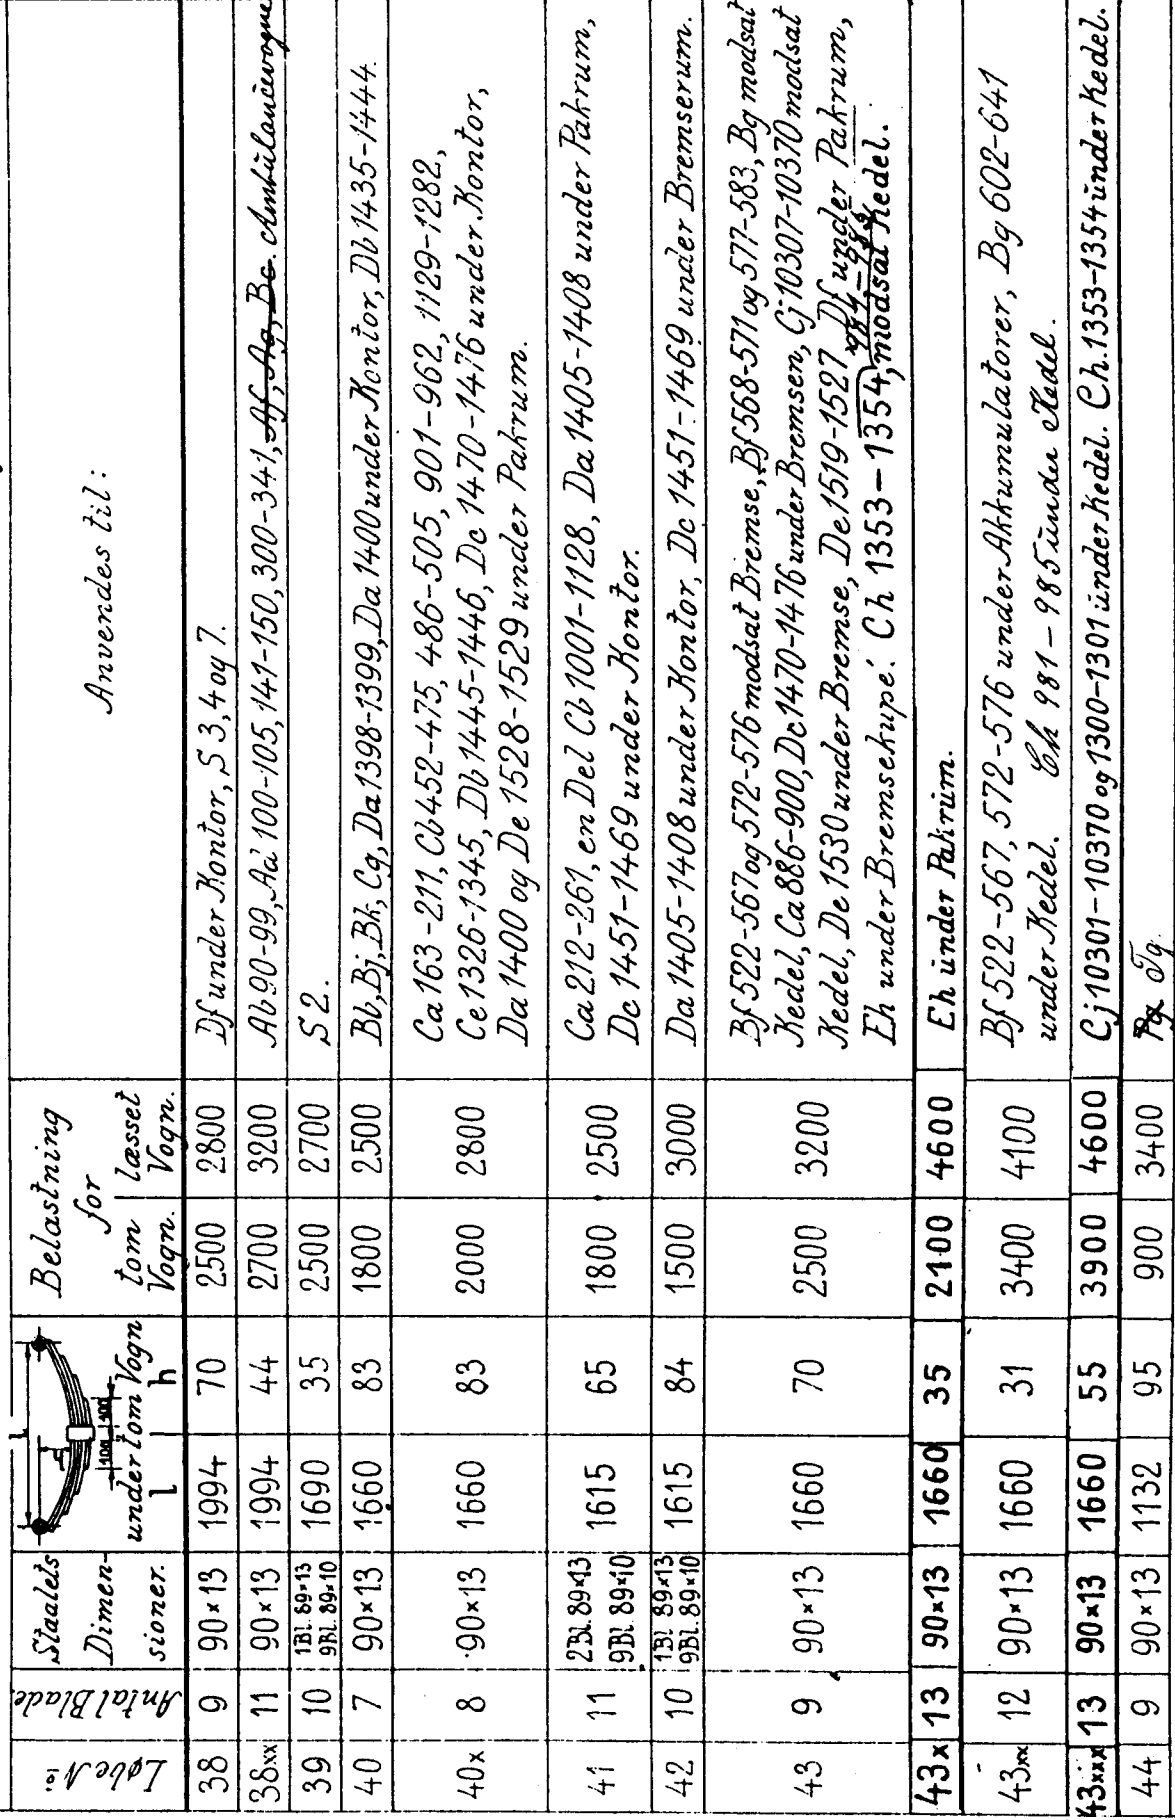 Løbe No.
Antal Blade
Staalets Dimen-sioner.
l
h
100 100
under tom Vogn
l
h
Belastning
for
tom Vogn.
læsset Vogn.
Anvendes til:
38 9 90×13 1994 70 2500 2800 Df under Kontor, S 3, 4 og 7.
38xx 11 90×13 1994 44 2700 3200 Ab 90-99, Aa 100-105, 141-150, 300-341, Af, Ag, Bc. Ambülancevogne
39 10 1Bl. 89×13 1690 35 2500 2700 S 2.
9Bl. 89×10
40 7 90×13 1660 83 1800 2500 Bl, Bj, Bk, Cq, Da 1398-1399, Da 1400 under Kontor, Db 1435-1444.
40x 8 90×13 1660 83 2000 2800 Ca 163-211, Cb 452-475, 486-505, 901-962, 1129-1282,
Ce 1326-1345, Db 1445-1446, Dc 1470-1476 under Kontor,
Da 1400 og De 1528-1529 under Pakrum.
41 11 2Bl. 89×13 1615 65 1800 2500 Ca 212-261, en Del Cb 1001-1128, Da 1405-1408 under Pakrum,
9Bl. 89×10 Dc 1451-1469 under Kontor.
42 10 1Bl. 89×13 1615 84 1500 3000 Da 1405-1408 under Kontor, Dc 1451-1469 under Bremserum.
9Bl. 89×10
43 9 90×13 1660 70 2500 3200 Bf 522-567 og 572-576 modsat Bremse, Bf 568-571 og 577-583, Bg modsat
Kedel, Ca 886-900, Dc 1470-1476 under Bremsen, Cj 10307-10370 modsat
Kedel, De 1530 under Bremse, De 1519-1527, Df under Pakrum,
984-985
Eh under Bremsekupé. Ch 1353-1354, modsat Kedel.
43x 13 90×13 1660 35 2100 4600 Eh ünder Pakrüm.
43xx 12 90×13 1660 31 3400 4100 Bf 522-567, 572-576 under Akkumulatorer, Bg 602-641
under Kedel. Ch 981-985 ünder Kedel.
43xxx 13 90×13 1660 55 3900 4600 Cj 10301-10370 og 1300-1301 ünder Kedel. Ch. 1353-1354 ünder Kedel.
44 9 90×13 1132 95 900 3400 Tg.